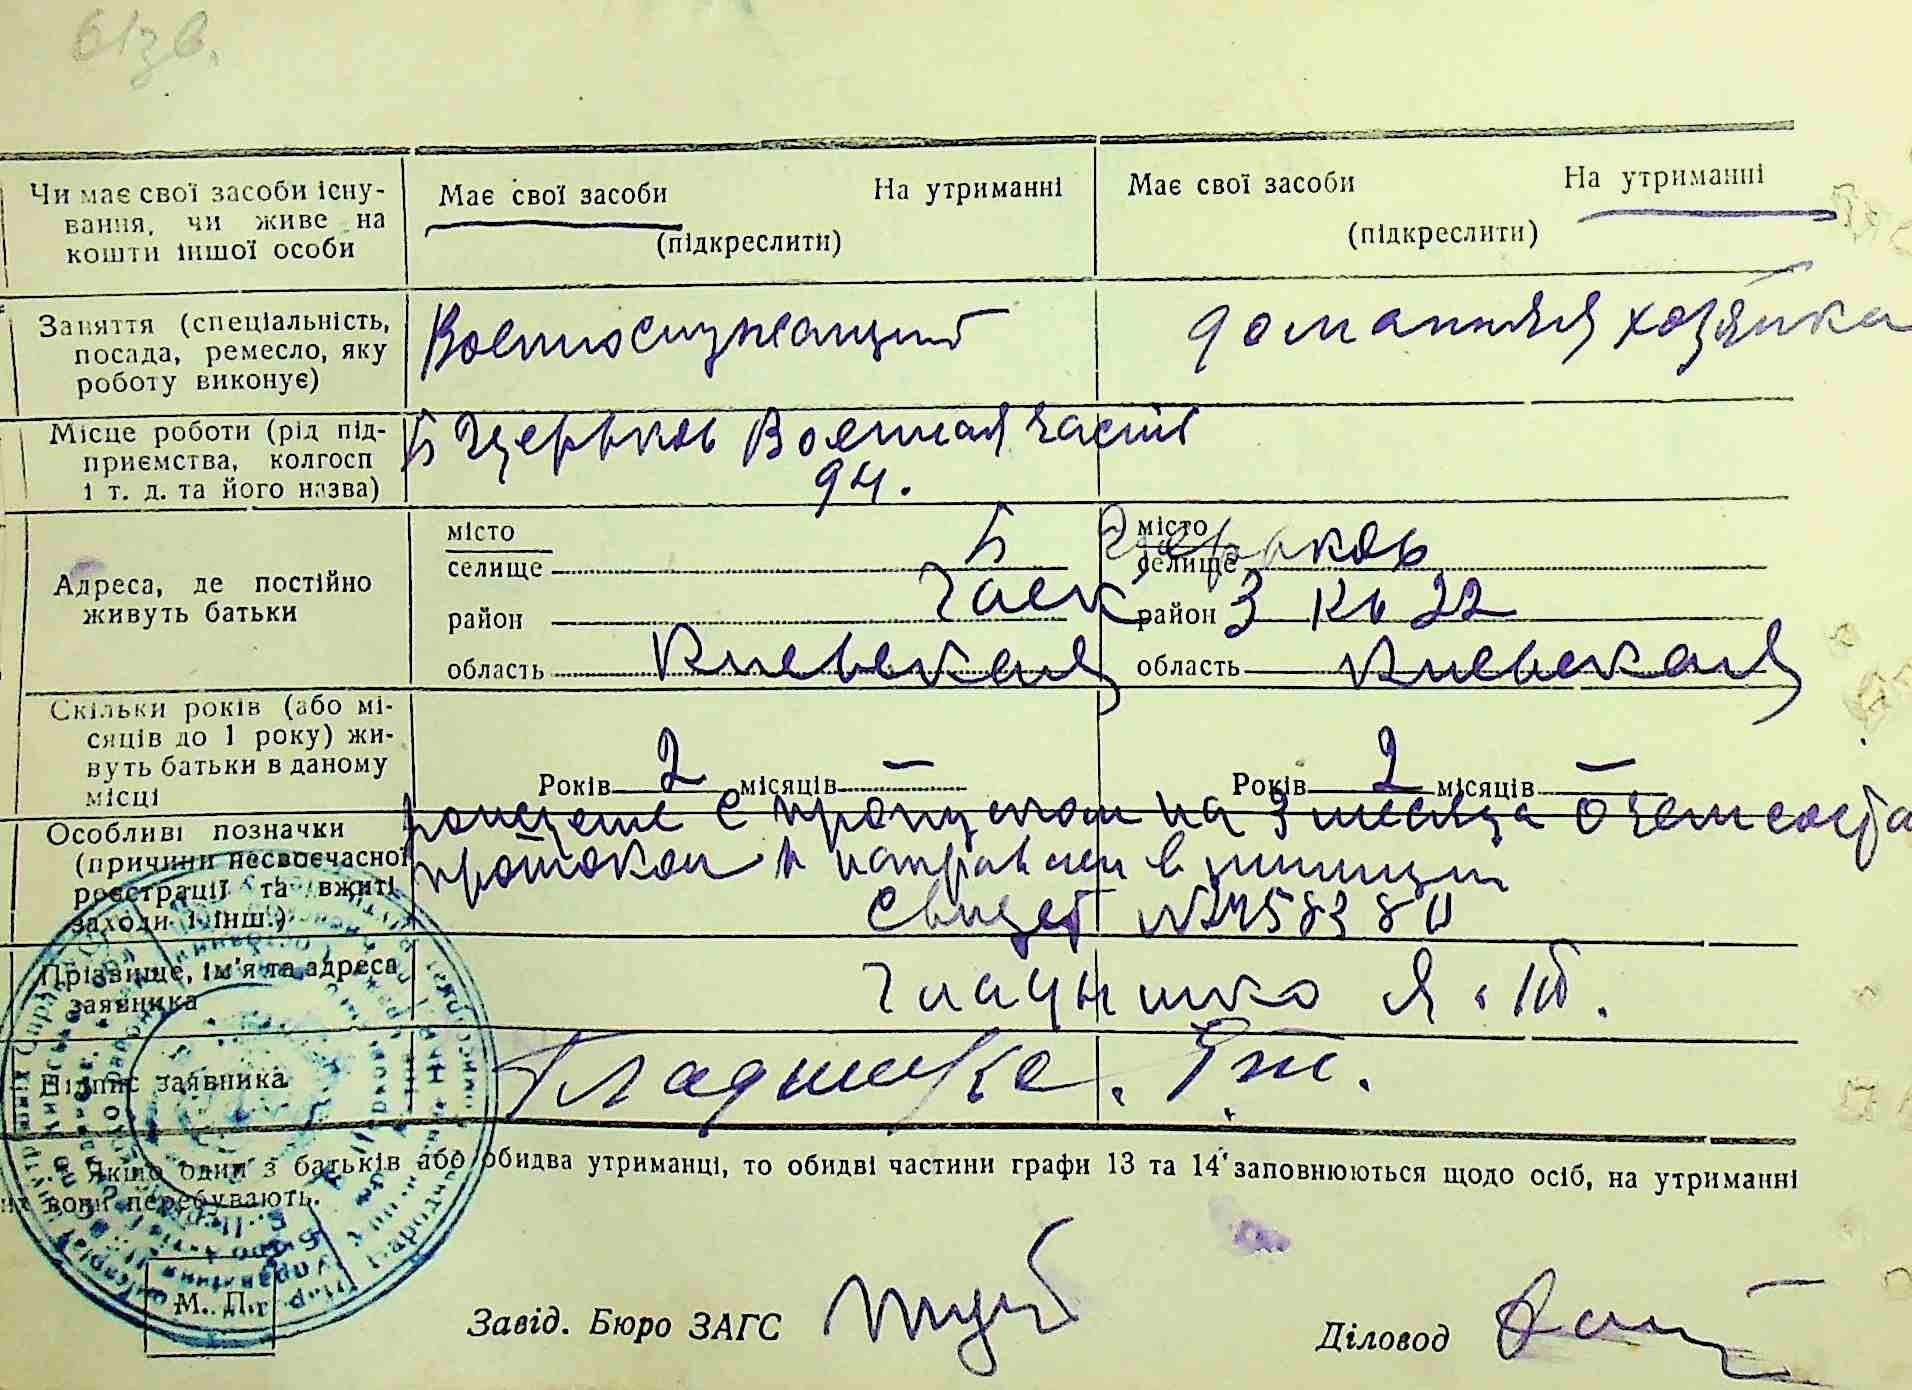 61зв.
Чи має свої засоби існу-
вання, чи живе на
кошти іншої особи
Має свої засоби На утриманні
(підкреслити)
Має свої засоби На утриманні
(підкреслити)
Заняття (спеціальність,
посада, ремесло, яку
роботу виконує)
Военнослужащий
домашняя хозяйка
Місце роботи (рід під-
приємства, колгосп
і т. д. та його назва)
Б Церьковь Военная часть
94.
Адреса, де постійно
живуть батьки
місто
селище
район
область Киевская
місто
Б Церьковь
селище
район 3 Кв 22
область Киевская
Скільки років (або мі-
сяців до 1 року) жи-
вуть батьки в даному
місці
Років 2 місяців —
Років 2 місяців —
Особливі позначки
(причини несвоєчасної
реєстрації та вжиті
заходи і інш.)
с пропуском на 3 месяца о чем соста
протокол и направлен в милицию
Свидет №
Прізвище, ім'я та адреса
заявника
Гладышко Я. Т.
Підпис заявника
Гладышко. Я. Т.
Якщо один з батьків або обидва утриманці, то обидві частини графи 13 та 14 заповнюються щодо осіб, на утриманні
их вони перебувають.
М. П.
Завід. Бюро ЗАГС
Діловод